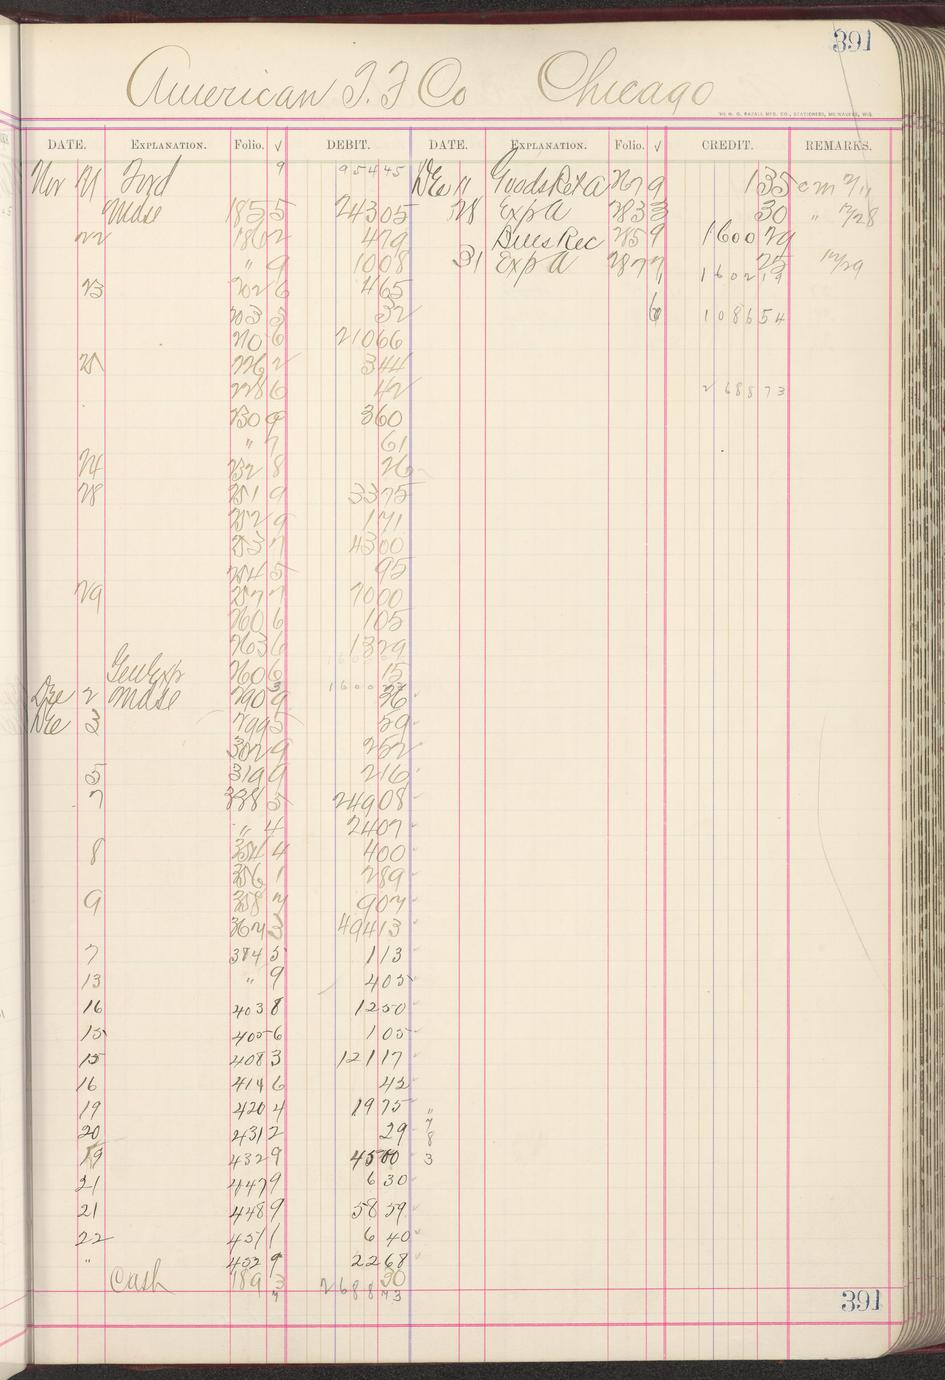 391
American T. F Co Chicago
THE H. G. RAZALL MFG. CO., STATIONERS, MILWAUKEE, WIS.
DATE. EXPLANATION. Folio. √ DEBIT. DATE. EXPLANATION. Folio. √ CREDIT. REMARKS.
Nov 21 Ford 9 954 45 Dec 11 Goods Ret a 267 9 1 35 cm
Mdse 185 5 243 05 28 Exp a 283 3 30 " 12/28
22 186 2 4 79 Bills Rec 285 9 1600 29
" 9 10 08 31 Exp a 287 7 25 12/29
23 202 6 4 65 1 1602 19
203 5 32
210 6 210 66 6 1086 54
25 226 2 3 44
228 6 42 2688 73
230 9 3 60
" 7 61
24 232 8 26
28 251 9 33 75
252 9 1 71
253 7 43 00
254 5 95
29 257 7 70 00
260 6 1 05
263 6 13 29
Gen Exp 260 6 15
Dec 2 Mdse 290 9 36
1600
Dec 3 299 5 59
302 9 2 52
5 319 9 2 16
7 338 5 249 08
" 4 24 07
8 354 4 4 00
356 1 2 89
9 358 7 9 07
367 3 494 13
7 384 5 1 13
13 " 9 4 05
16 403 8 12 50
15 405 6 1 05
15 408 3 121 17
16 414 6 45
19 420 4 19 75 "
20 431 2 29 7 8
19 432 9 45 00 3
21 447 9 6 30
21 448 9 58 59
22 451 1 6 40
" 452 9 22 68
Cash 189 3 30
7 2688 73
391